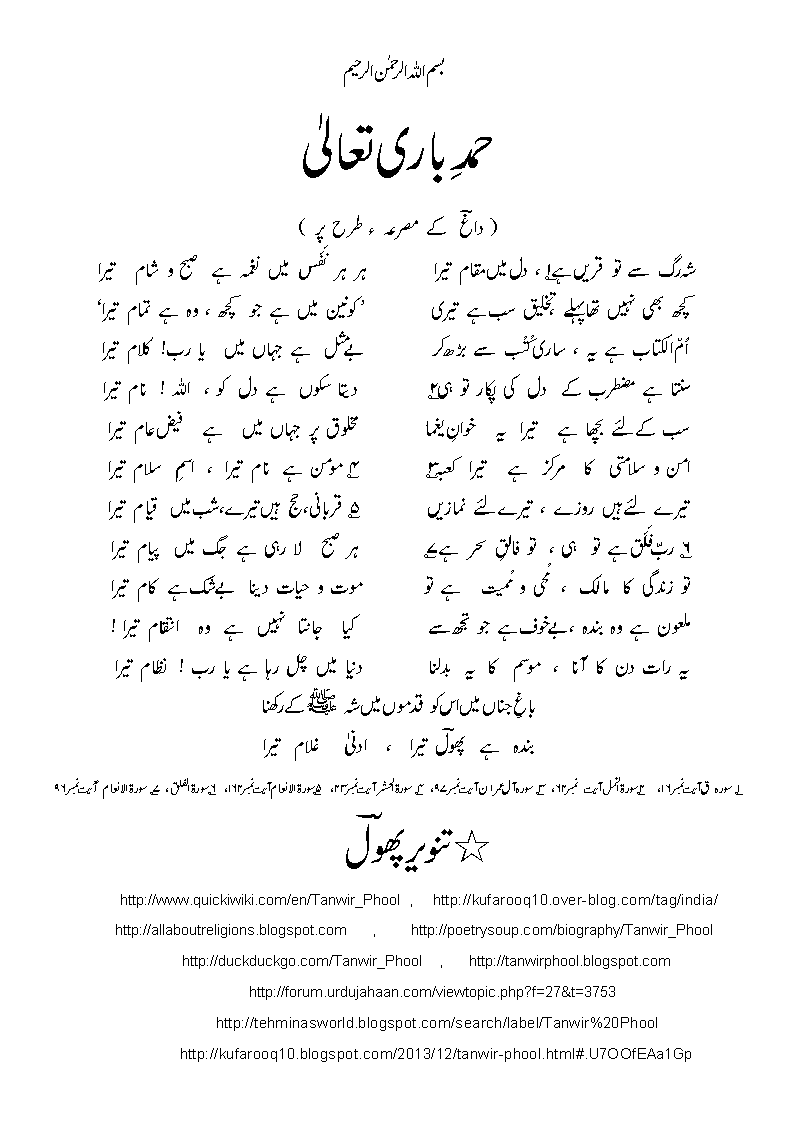 بسم اللہ الرحمٰن الرحیم
حمدِ باری تعالیٰ
( داغؔ کے مصرعہ ء طرح پر )
شہ رگ سے تو قریں ہے۱ ، دل میں مقام تیرا ہر ہر نَفَس میں نغمہ ہے صبح و شام تیرا
کچھ بھی نہیں تھا پہلے ، تخلیق سب ہے تیری ’کونین میں ہے جو کچھ ، وہ ہے تمام تیرا‘
اُمّ الکتاب ہے یہ ، ساری کُتُب سے بڑھ کر بے مثل ہے جہاں میں یا رب! کلام تیرا
سنتا ہے مضطرب کے دل کی پکار تو ہی۲ دیتا سکوں ہے دل کو ، اللہ ! نام تیرا
سب کے لئے بچھا ہے تیرا یہ خوانِ یغما مخلوق پر جہاں میں ہے فیض عام تیرا
امن و سلامتی کا مرکز ہے تیرا کعبہ۳ ۴ مومن ہے نام تیرا ، اسمِ سلام تیرا
تیرے لئے ہیں روزے ، تیرے لئے نمازیں ۵ قربانی، حج ہیں تیرے، شب میں قیام تیرا
۶ ربِّ فَلَق ہے تو ہی ، تو فالقِ سحر ہے۷ ہر صبح لا رہی ہے جگ میں پیام تیرا
تو زندگی کا مالک ، مُحی و مُمیت ہے تو موت و حیات دینا بے شک ہے کام تیرا
ملعون ہے وہ بندہ ، بے خوف ہے جو تجھ سے کیا جانتا نہیں ہے وہ انتقام تیرا !
یہ رات دن کا آنا ، موسم کا یہ بدلنا دنیا میں چل رہا ہے یا رب ! نظام تیرا
باغِ جناں میں اس کو قدموں میں شہ ﷺ کے رکھنا
بندہ ہے پھولؔ تیرا ، ادنیٰ غلام تیرا
۱ سورہ ق آیت نمبر۱۶، ۲ سورۃ النمل آیت نمبر۶۲، ۳ سورہ آل عمران آیت نمبر۹۷، ۴ سورۃ الحشر آیت نمبر۲۳، ۵ سورۃ الانعام آیت نمبر۱۶۲، ۶ سورۃ الفلق، ۷ سورۃ الانعام آیت نمبر۹۶
☆ تنویر پھولؔ
http://www.quickiwiki.com/en/Tanwir_Phool , http://kufarooq10.over-blog.com/tag/india/
http://allaboutreligions.blogspot.com , http://poetrysoup.com/biography/Tanwir_Phool
http://duckduckgo.com/Tanwir_Phool , http://tanwirphool.blogspot.com
http://forum.urdujahaan.com/viewtopic.php?f=27&t=3753
http://tehminasworld.blogspot.com/search/label/Tanwir%20Phool
http://kufarooq10.blogspot.com/2013/12/tanwir-phool.html#.U7OOfEAa1Gp